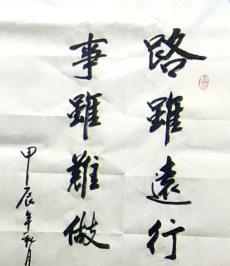 路雖遠行
事雖難做
甲辰年秋月